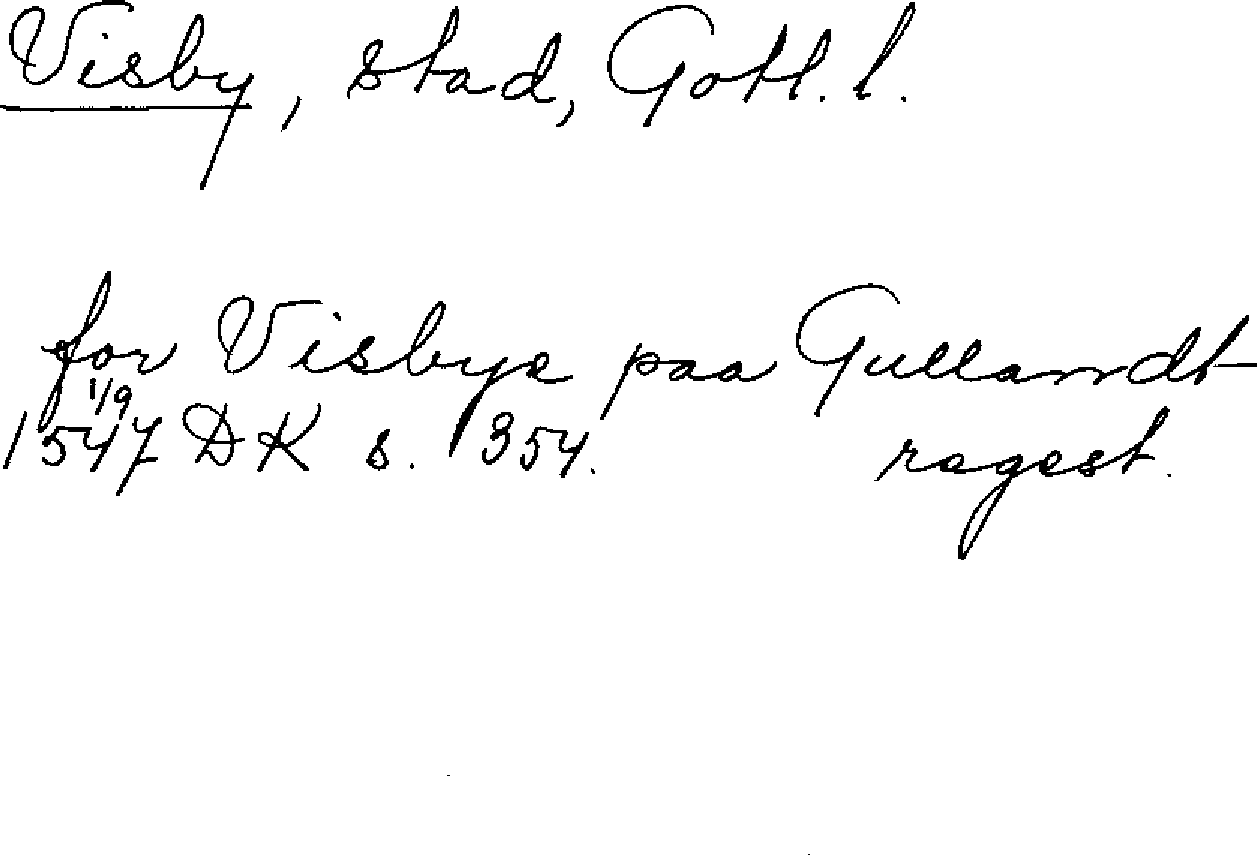 Visby, stad, Gotl. l.
for Visbye paa Gullandt
1/9
1547 DK s. 354. regest.